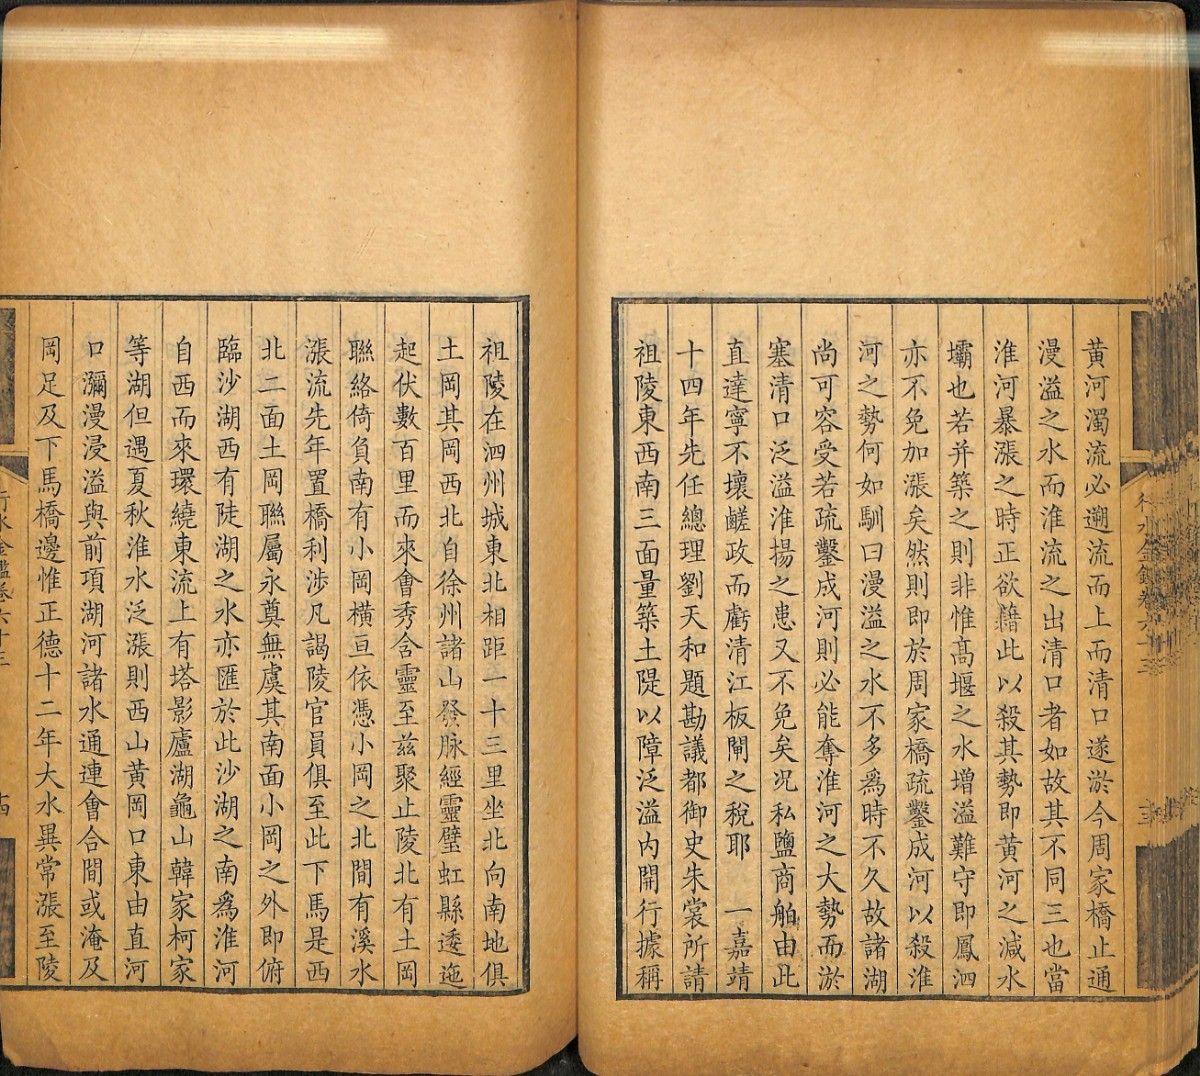 黃河濁流必遡流而上而清口遂淤今周家橋止通
漫溢之水而淮流之出清口者如故其不同三也當
淮河暴漲之時正欲藉此以殺其勢即黃河之減水
壩也若并築之則非惟髙堰之水增溢難守即鳳泗
亦不免加漲矣然則即於周家橋疏鑿成河以殺淮
河之勢何如馴曰漫溢之水不多爲時不久故諸湖
尚可容受若疏鑿成河則必能奪淮河之大勢而淤
塞清口泛溢淮揚之患又不免矣况私鹽商舶由此
直達寧不壞鹺政而虧清江板閘之稅耶　一嘉靖
十四年先任總理劉天和題勘議都御史朱裳所請
祖陵東西南三面量築土隄以障泛溢内開行據稱
行水金鑑卷六十三
祖陵在泗州城東北相距一十三里坐北向南地俱
土岡其岡西北自徐州諸山發脉經靈璧虹縣逶迤
起伏數百里而來會秀含靈至茲聚止陵北有土岡
聯絡倚負南有小岡橫亘依憑小岡之北間有溪水
漲流先年置橋利涉凡謁陵官員俱至此下馬是西
北二面土岡聯屬永奠無虞其南面小岡之外即俯
臨沙湖西有陡湖之水亦匯於此沙湖之南爲淮河
自西而來環繞東流上有塔影廬湖龜山韓家柯家
等湖但遇夏秋淮水泛漲則西山黃岡口東由直河
口瀰漫浸溢與前項湖河諸水通連會合間或淹及
岡足及下馬橋邊惟正德十二年大水異常漲至陵
行水金鑑卷六十三